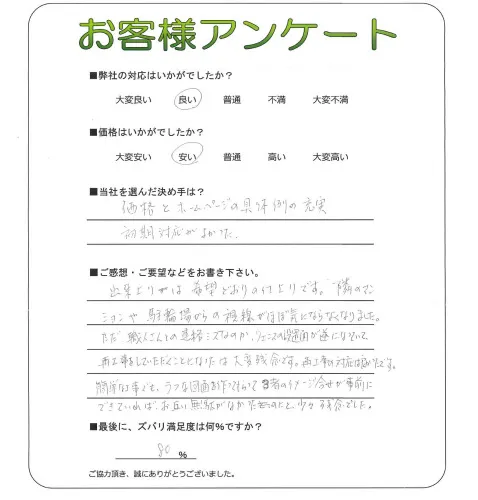 お客様アンケート
■弊社の対応はいかがでしたか？
大変良い 良い 普通 不満 大変不満
■価格はいかがでしたか？
大変安い 安い 普通 高い 大変高い
■当社を選んだ決め手は？
価格とホームページの具体例の充実
初期対応がよかった。
■ご感想・ご要望などをお書き下さい。
出来上りは希望どおりの仕上りです。隣のマン
ションや駐輪場からの視線がほぼ気にならなくなりました。
ただ職人さんとの連絡ミスなのか、フェンスの
が逆になっていて
再工事をしていただくことになったのは大変残念です。再工事の対応は
簡単な工事でも、ラフな図面を作ってもらって3者のイメージ合せが事前に
できていれば、お互い無駄がなかったと思うのと、少々残念でした。
■最後に、ズバリ満足度は何%ですか？
80 %
ご協力頂き、誠にありがとうございました。